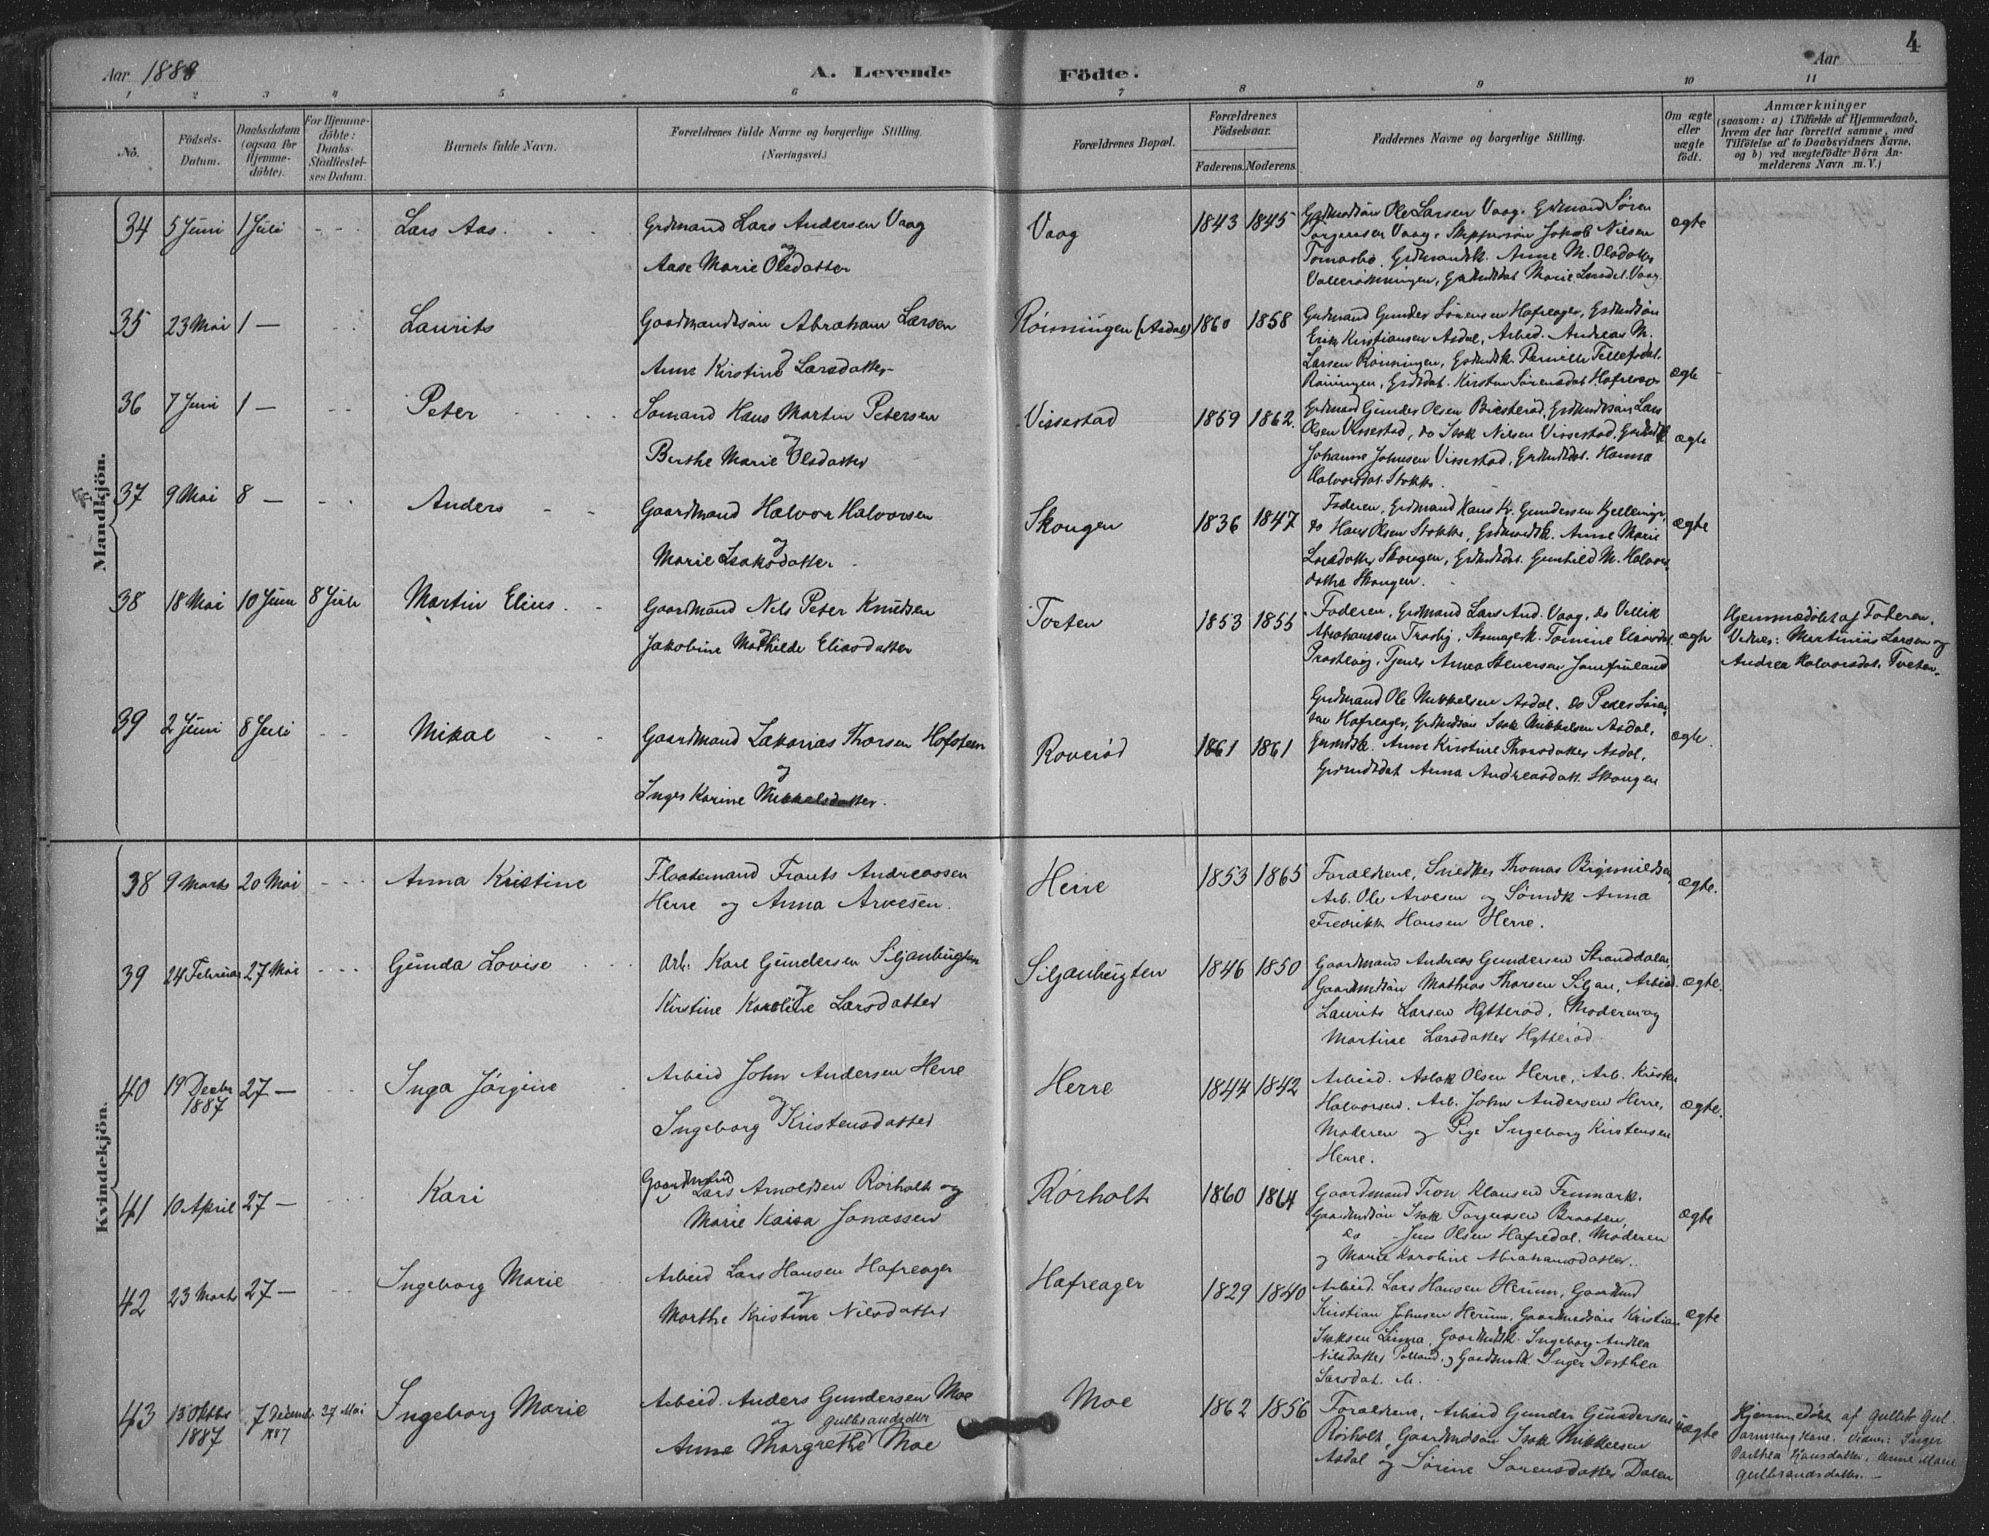 Aar 1888
A. Levende
Födte.
Aar
4
1 2 3 4 5 6 7 8 9 10 11
No.
Födsels-
Datum.
Daabsdatum
(ogsaa for
Hjemme-
döbte).
For Hjemme-
döbte:
Daabs-
Stadfæstel-
ses Datum.
Barnets fulde Navn.
Forældrenes fulde Navne og borgerlige Stilling.
(Næringsvei.)
Forældrenes Bopæl.
Forældrenes
Födselsaar.
Faderens. Moderens.
Faddernes Navne og borgerlige Stilling.
Om ægte
eller
uægte
födt.
Anmærkninger
(saasom: a) i Tilfælde af Hjemmedaab,
hvem der har forrettet samme, med
Tilföielse af to Daabsvidners Navne,
og b) ved uægtefödte Börn An-
melderens Navn m. V.)
Mandkjön.
34 5 Juni 1 Juli Lars Aas. Grdmand Lars Andersen Vaag
og
Aase Marie Olsdatter
Vaag 1843 1845
Grdmdsön Ole Larsen Vaag. Grdmand Sören
Torgersen Vaag. Skippersön Jakob Nilsen
Grdmandsk. Anne M. Olsdatter
Grdmdsdat Marie Larsdat. Vaag
ægte
35 23 Mai 1 — Laurits Gaardmandssön Abraham Larsen
og
Anne Kirstine Larsdatter
Rönningen (Asdal) 1860 1858
Grdmand Gunder Sörensen Hafreager, Grdmdsön
Erik Kristiansen Asdal, Arbeid. Andreas M.
Larsen Rönningen, Grdmdsk. Pernille Tellefsdat.
Rönningen, Grdmdsdat. Kirsten Sörensdat Hafreager
ægte
36 7 Juni 1 — Peter Sömand Hans Martin Petersen
og
Berthe Marie Olsdatter
Vissestad 1859 1862.
Grdmand Gunder Olsen Bjesteröd, Grdmdssön Lars
Olsen Vissestad, do Isak Nilsen Vissestad, Grdmdsk.
Johanne Johnsen Vissestad, Grdmdsdat. Hanna
Halvorsdat. Stokke.
ægte
37 9 Mai 8 — Anders Gaardmand Halvor Halvorsen
og
Marie Isaksdatter
Skougen 1836 1847
Faderen, Grdmand Hans Kr. Gundersen
do Hans Olsen Stokke, Grdmandsk. Anne Marie
Larsdatter Skougen, Grdmdsdat. Gunhild M. Halvors-
datter Skougen.
ægte
38 18 Mai 10 Juni 8 Juli Martin Elius. Gaardmand Nils Peter Knudsen
og
Jakobine Mathilde Eliasdatter
Tveten 1853 1855
Faderen, Grdmand Lars And. Vaag, do
Abrahamsen Trosby,
ægte
Hjemmedöbt af Faderen.
Vidner: Martinius Larsen og
Andrea Halvorsdat. Tveten.
39 2 Juni 8 Juli Mikal Gaardmand Zakarias Thorsen Hofsteen
og
Inger Karine Mikkelsdatter.
Roveröd 1861 1861
Grdmand Ole Mikkelsen Asdal. do Peder Sören-
sen Hafreager, Grdmdsön Isak Mikkelsen Asdal,
Grdmdsk. Anne Kirstine Thorsdatter Asdal,
Grdmdsdat Anna Andreasdatt. Skougen
ægte.
Kvindekjön.
38 9 Marts 20 Mai Anna Kristine Flaademand Frants Andreassen
Herre og Anna Arvesen.
Herre 1853 1865
Forældrene, Snedker Thomas
Arb. Ole Arvesen og Sömdk Anna
Fredrikke Hansen Herre.
ægte.
39 24 Februar 27 Mai Gunda Lovise Arb. Karl Gundersen Siljanbugten
og
Kirstine Karoline Larsdatter
Siljanbugten 1846 1850
Gaardmand Andreas Gundersen Stranddalen,
Gaardmdsön Mathias Thorsen Siljan, Arbeid.
Laurits Larsen Hytteröd, Moderen og
Martine Larsdatter Hytteröd
ægte.
40 19 Decbr 27 — Inga Jörgine Arbeid John Andersen Herre
1887
og
Ingeborg Kristensdatter
Herre 1844 1842
Arbeid. Aslak Olsen Herre, Arb. Kristen
Halvorsen. Arb. John Andersen Herre,
Moderen og Pige Ingeborg Kirstensen
Herre.
ægte.
41 10 April 27 — Kari Gaardmand
Lars Arnoldsen Rörholt og
Marie Kaisa Jonassen
Rörholt 1860 1864
Gaardmand Tron Klausen Finmark.
Gaardmdsön Isak Torjussen Braaten,
do Jens Olsen Hafredal. Moderen
og Marie Karoline Abrahamsdatter.
ægte
42 23 Marts 27 — Ingeborg Marie Arbeid Lars Hansen Hafreager
og
Marthe Kristine Nilsdatter
Hafreager 1829 1840
Arbeid. Lars Hansen Herum, Gaardmd
Kristian Johnsen Herum, Gaardmdsön Kristian
Isaksen, Gaardmdsk. Ingeborg Andrea
Nilsdatter og Gaardmdsk. Inger Dorthea
Larsdat.
ægte
43 15 Oktbr 7 Decemb. 27 Mai Ingeborg Marie Arbeid. Anders Gundersen Moe
1887 1887
og Gulbrandsdtr
Anne Margrethe Moe
Moe 1862 1856
Forældrene, Arbeid Gunder Gundersen
Rörholt, Gaardmdsön Isak Mikkelsen
Asdal og Sörine Sörensdatter Dalen
uægte
Hjemmedöbt af Gullik Gul-
Vidner: Inger
Dorthea Hansdatter, Anne Marie
Gulbrandsdatter.